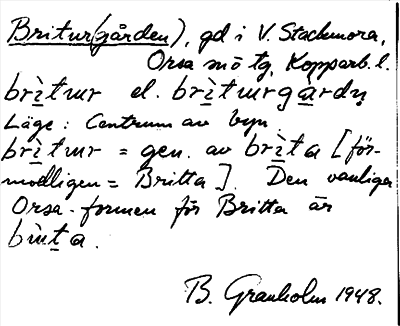 Britur(gården), gd i V. Stackmora,
Orsa sn o tg, Kopparb. l.
brìtur el. brìturgardn
Läge: Centrum av byn
brìtur = gen. av brìta [för-
modligen = Britta]. Den vanliga
Orsa-formen för Britta är
bìta.
B. Granholm 1948.